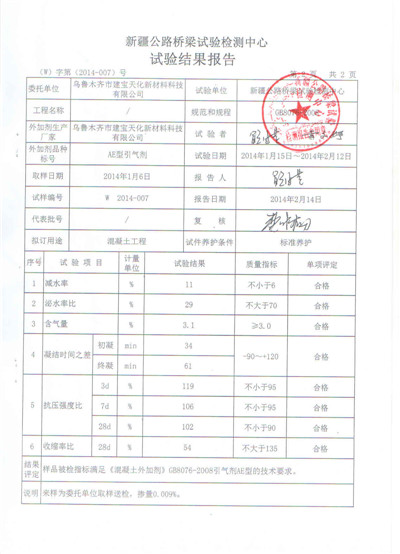 新疆公路桥梁试验检测中心
试验结果报告
(W) 字第 (2014-007) 号
共 2 页
委托单位 乌鲁木齐市建宝天化新材料科技有限公司 试验单位 新疆公路桥梁试验检测中心
工程名称 / 规范和规程 GB8076-2008
外加剂生产厂家 乌鲁木齐市建宝天化新材料科技有限公司 试验者
外加剂品种标号 AE型引气剂 试验日期 2014年1月15日~2014年2月12日
取样日期 2014年1月6日 报告人
试样编号 W 2014-007 报告日期 2014年2月14日
代表批号 / 复核
拟订用途 混凝土工程 试件养护条件 标准养护
序号 试验项目 计量单位 试验结果 质量指标 单项评定
1 减水率 % 11 不小于6 合格
2 泌水率比 % 29 不大于70 合格
3 含气量 % 3.1 ≥3.0 合格
4 凝结时间之差 初凝 min 34 -90~+120 合格
终凝 min 61
5 抗压强度比 3d % 119 不小于95 合格
7d % 106 不小于95 合格
28d % 102 不小于90 合格
6 收缩率比 28d % 54 不大于135 合格
结果评定 样品被检指标满足《混凝土外加剂》GB8076-2008引气剂AE型的技术要求。
说明 来样为委托单位取样送检，掺量0.009%。